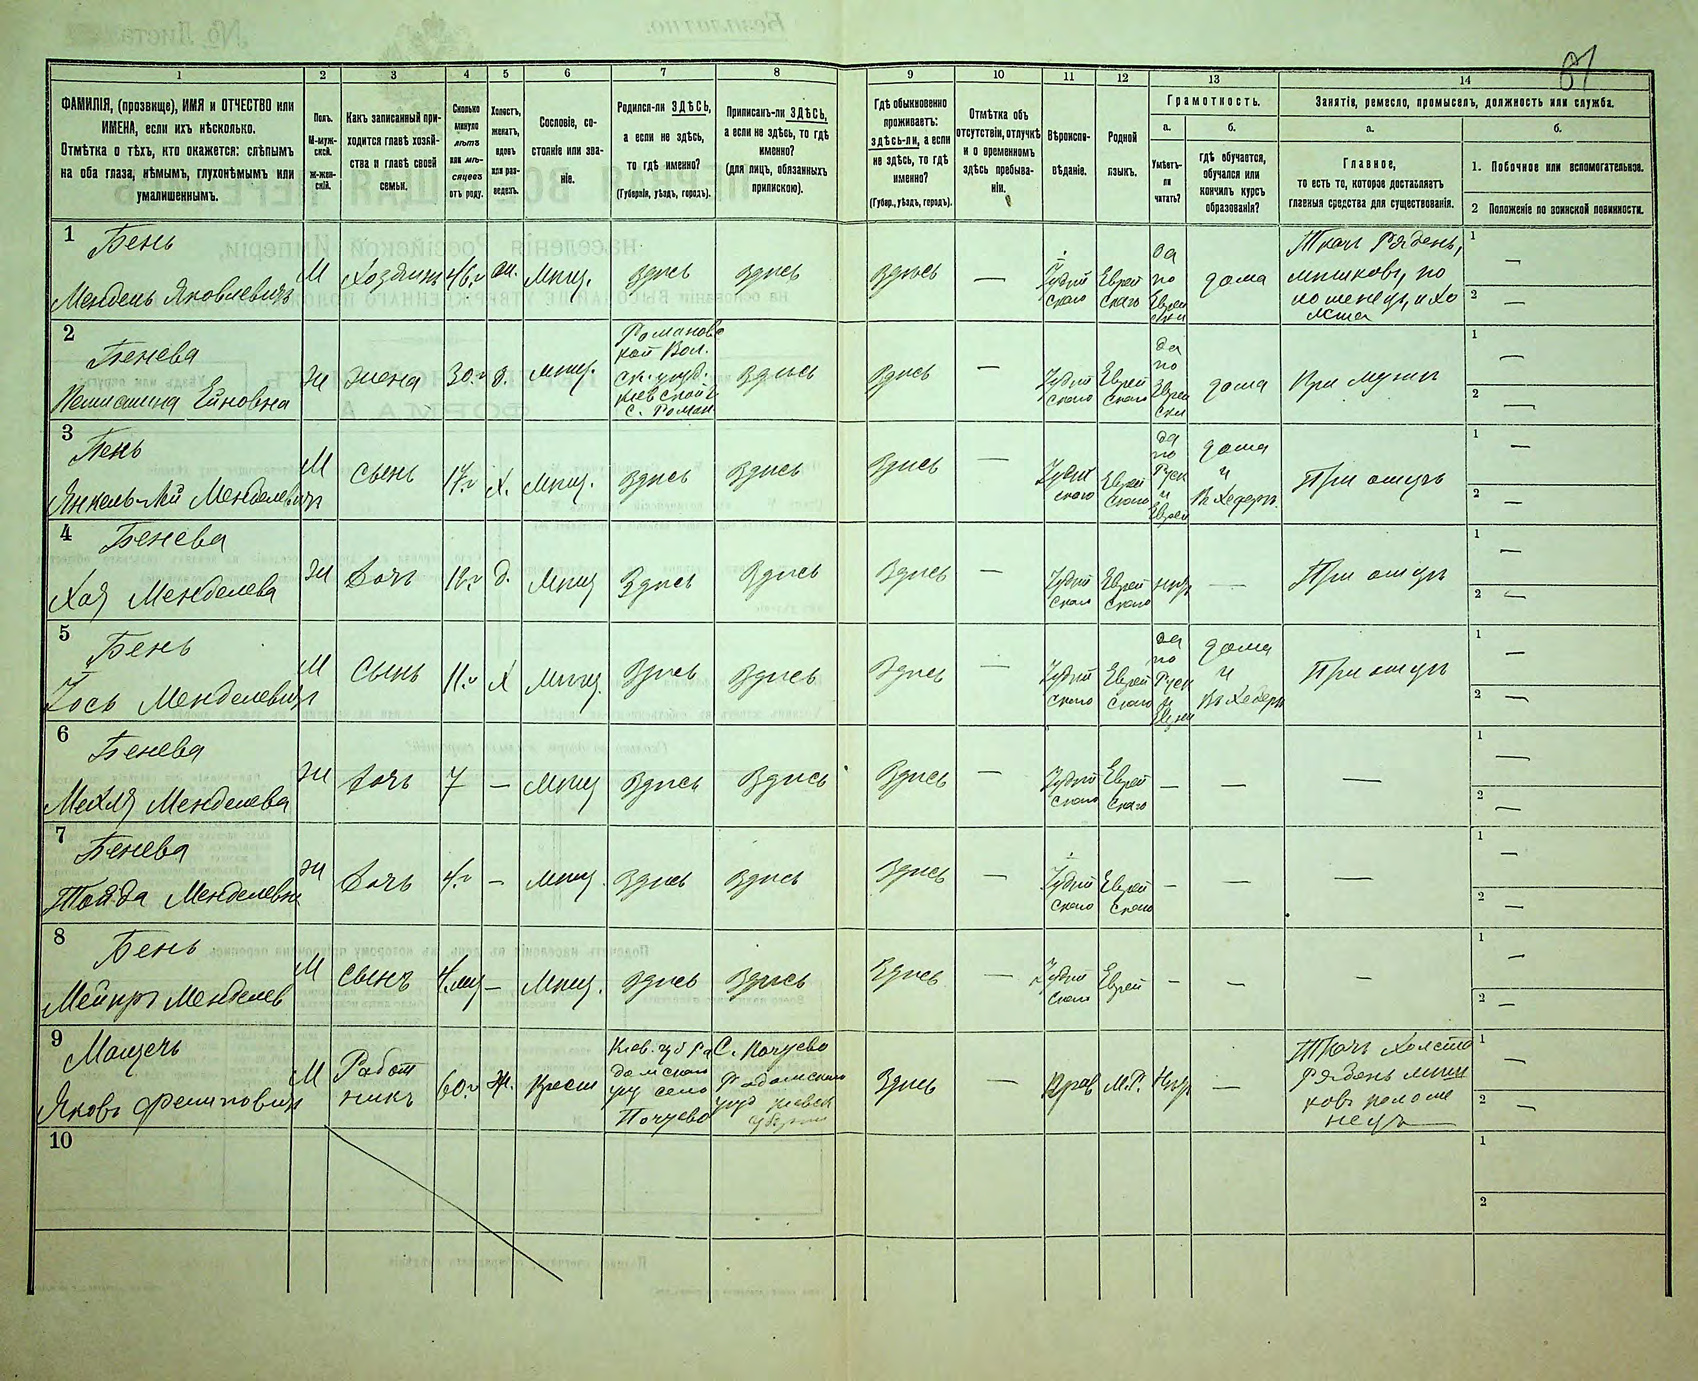 67
1 2 3 4 5 6 7 8 9 10 11 12 13 14
ФАМИЛІЯ, (прозвище), ИМЯ и ОТЧЕСТВО или
ИМЕНА, если ихъ нѣсколько.
Отмѣтка о тѣхъ, кто окажется: слѣпымъ
на оба глаза, нѣмымъ, глухонѣмымъ или
умалишеннымъ.
Полъ.
М-муж-
ской.
Ж-жен-
скій.
Какъ записанный при-
ходится главѣ хозяй-
ства и главѣ своей
семьи.
Сколько
минуло
лѣтъ
или мѣ-
сяцевъ
отъ роду.
Холостъ,
женатъ,
вдовъ
или раз-
веденъ.
Сословіе, со-
стояніе или зва-
ніе.
Родился-ли ЗДѢСЬ,
а если не здѣсь,
то гдѣ именно?
(Губернія, уѣздъ, городъ).
Приписанъ-ли ЗДѢСЬ,
а если не здѣсь, то гдѣ
именно?
(для лицъ, обязанныхъ
припискою).
Гдѣ обыкновенно
проживаетъ:
здѣсь-ли, а если
не здѣсь, то гдѣ
именно?
(Губер., уѣздъ, городъ).
Отмѣтка объ
отсутствіи, отлучкѣ
и о временномъ
здѣсь пребыва-
ніи.
Вѣроиспо-
вѣданіе.
Родной
языкъ.
Грамотность.
а.
Умѣетъ-
ли
читать?
б.
Гдѣ обучается,
обучался или
кончилъ курсъ
образованія?
Занятіе, ремесло, промыселъ, должность или служба.
а.
Главное,
то есть то, которое доставляетъ
главныя средства для существованія.
б.
1. Побочное или вспомогательное.
2 Положеніе по воинской повинности.
1
Бень
Мендель Яковлевичъ
М Хозяинъ 46 г. Мѣщ. Здѣсь Здѣсь Здѣсь —
Іудей
скаго
Еврей
скаго
да
по
Еврей
ски
дома
Ткачъ Ряденъ,
мѣшковъ, по
лотенецъ, и хо
лста
1 —
2 —
2
Бенева
Ейновна
Ж жена 30 г. З. Мѣщ.
Романовс
кой Вол.
Кіевской г.
с. Роман
Здѣсь Здѣсь —
Іудей
скаго
Еврей
скаго
да
по
Еврей
ски
дома При мужѣ
1 —
2 —
3
Бень
Янкель-Лей Менделевичъ
М Сынъ Х. Мѣщ. Здѣсь Здѣсь Здѣсь —
Іудей
скаго
Еврей
скаго
да
по
Руск
и
Еврей
дома
и
въ Хедерѣ.
При отцѣ
1 —
2 —
4
Бенева
Хая Менделева
Ж Дочь Д. Мѣщ Здѣсь Здѣсь Здѣсь —
Іудей
скаго
Еврей
скаго
нѣтъ — При отцѣ
1 —
2 —
5
Бень
Іось Менделевичъ
М Сынъ 11 г. Х Мѣщ. Здѣсь Здѣсь Здѣсь —
Іудей
скаго
Еврей
скаго
да
по
Руск
и
дома
и
въ Хедерѣ
При отцѣ
1 —
2 —
6
Бенева
Мехля Менделева
Ж Дочь 7 — Мѣщ Здѣсь Здѣсь Здѣсь —
Іудей
скаго
Еврей
скаго
— — —
1 —
2 —
7
Бенева
Тойда Менделевна
Ж Дочь 4 г. — Мѣщ. Здѣсь Здѣсь Здѣсь —
Іудей
скаго
Еврей
скаго
— — —
1 —
2 —
8
Бень
Мейиръ Менделев
М Сынъ 4 мц — Мѣщ. Здѣсь Здѣсь Здѣсь —
Іудей
скаго
Еврей
— — —
1 —
2 —
9
Яковъ Филиповичъ
М
Работ
никъ
60 г. Ж. Крест
Кіев. губ Ра
домскаго
уѣз село
Почуево
С. Почуево
Радомскаго
уѣз Кіевск
губерніи
Здѣсь — Прав М.Р. Нѣтъ —
Ткачъ Холста
Ряденъ мѣш
ковъ полоте
нецъ
1 —
2 —
10
1
2